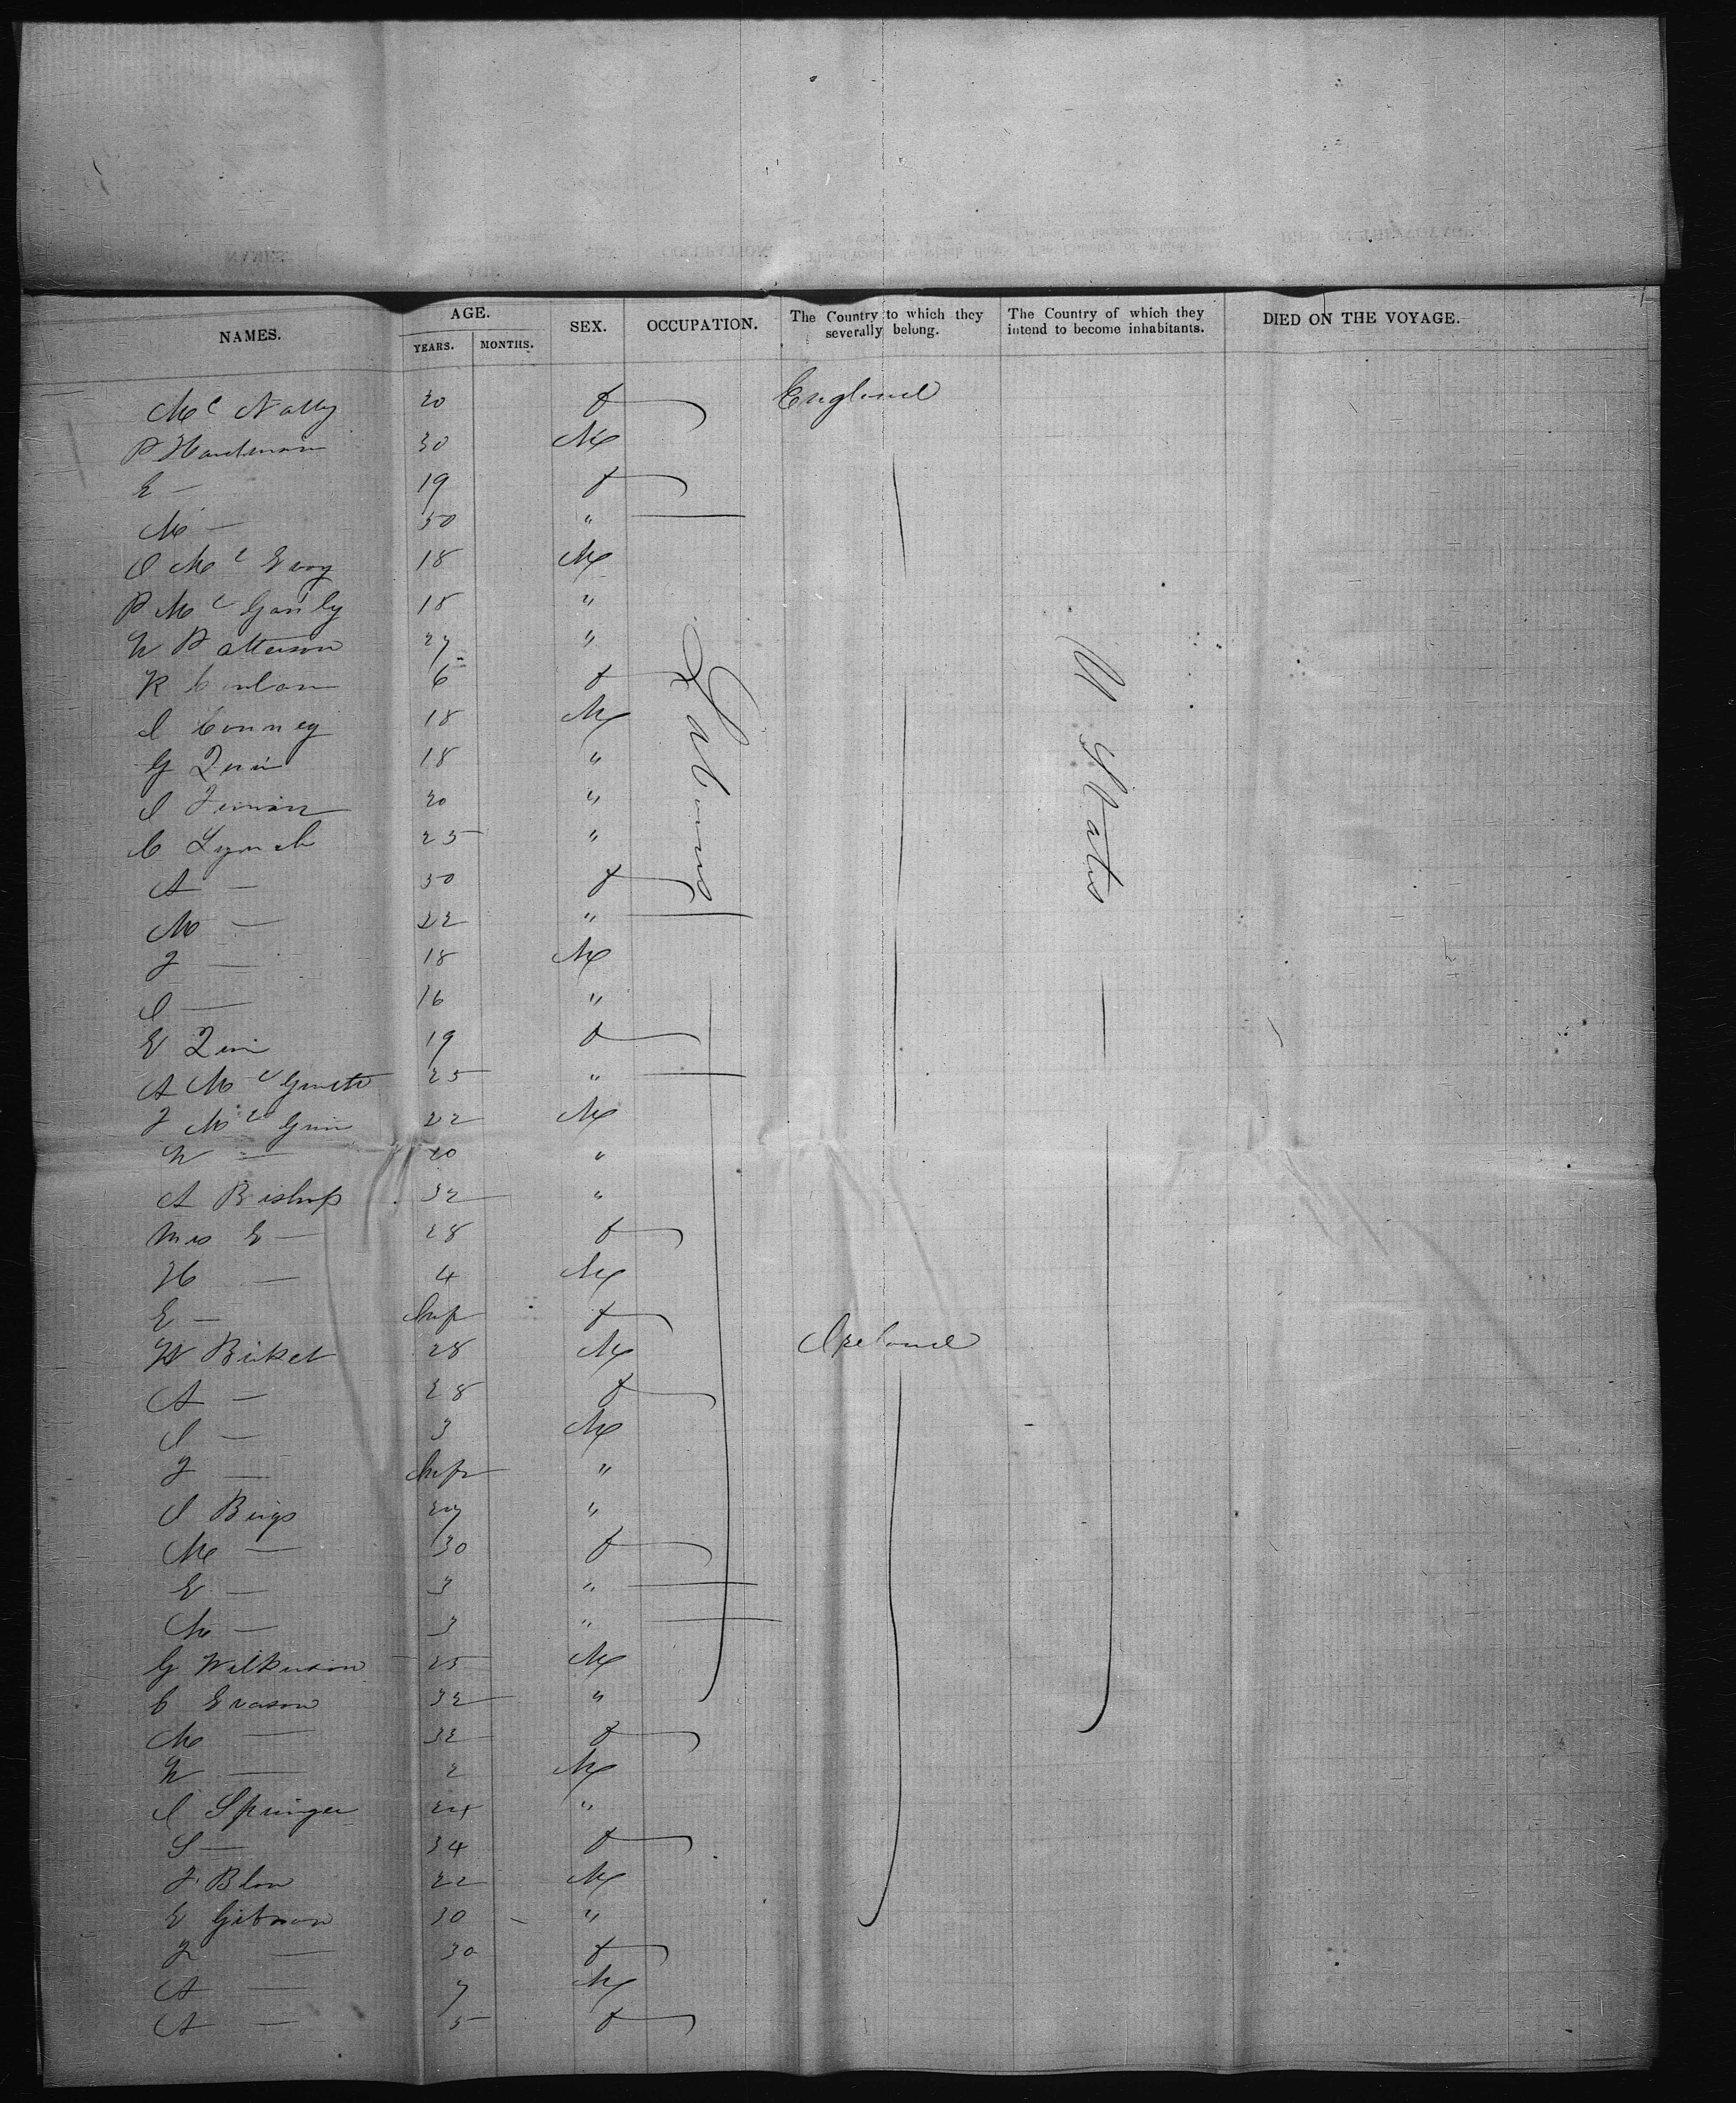 NAMES. AGE. YEARS. MONTHS. SEX. OCCUPATION. The Country to which they severally belong. The Country of which they intend to become inhabitants. DIED ON THE VOYAGE.
Mc Nally 20 f England
P Hardman 30 M
E — 19 f
M — 50 "
J Mc Evoy 18 M
P Mc Ganly 18 "
W Patterson 27 "
K 6 f
J Conney 18 M
G Quin 18 "
J 20 "
C Lynch 25 "
A — 50 f
M — 22 "
J — 18 M
J — 16 "
E Quin 19 f
A Mc 25 "
J Mc Guin 22 M
W — 20 "
A Bishop 32 "
Mrs E — 28 f
H — 4 M
E — Inft f
W Birket 28 M Ireland
A — 28 f
J — 3 M
J — Inft "
J Bings 27 "
M — 30 f
E — 3 "
M — 3 "
G Wilkinson 25 M
C Evason 32 "
M — 32 f
W — 2 M
J Springer 24 "
S — 34 f
J Blow 22 M
E Gibson 30 "
J — 30 f
A — 7 M
A — 5 f
Labourers
U States